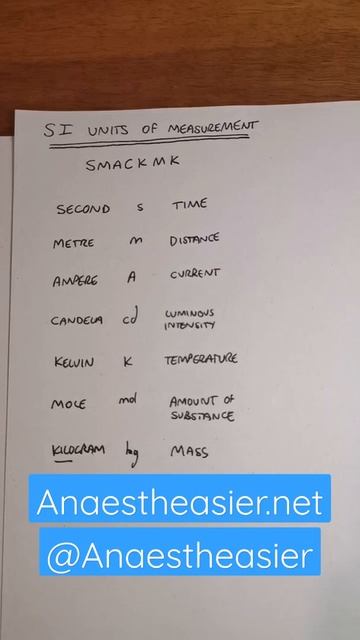 SI UNITS OF MEASUREMENT
SMACKMK
SECOND s TIME
METRE m DISTANCE
AMPERE A CURRENT
CANDELA cd LUMINOUS INTENSITY
KELVIN K TEMPERATURE
MOLE mol AMOUNT OF SUBSTANCE
KILOGRAM kg MASS
Anaestheasier.net
@Anaestheasier